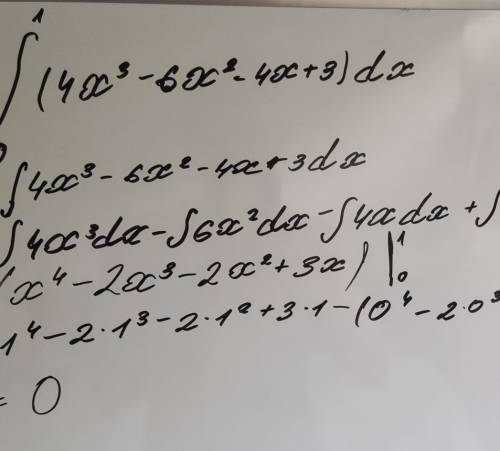 ∫ 1 (4x³ - 6x² - 4x + 3) dx
∫ 4x³ - 6x² - 4x + 3 dx
∫ 4x³ dx - ∫ 6x² dx - ∫ 4x dx + ∫
(x⁴ - 2x³ - 2x² + 3x) |₀¹
1⁴ - 2·1³ - 2·1² + 3·1 - (0⁴ - 2·0³
= 0